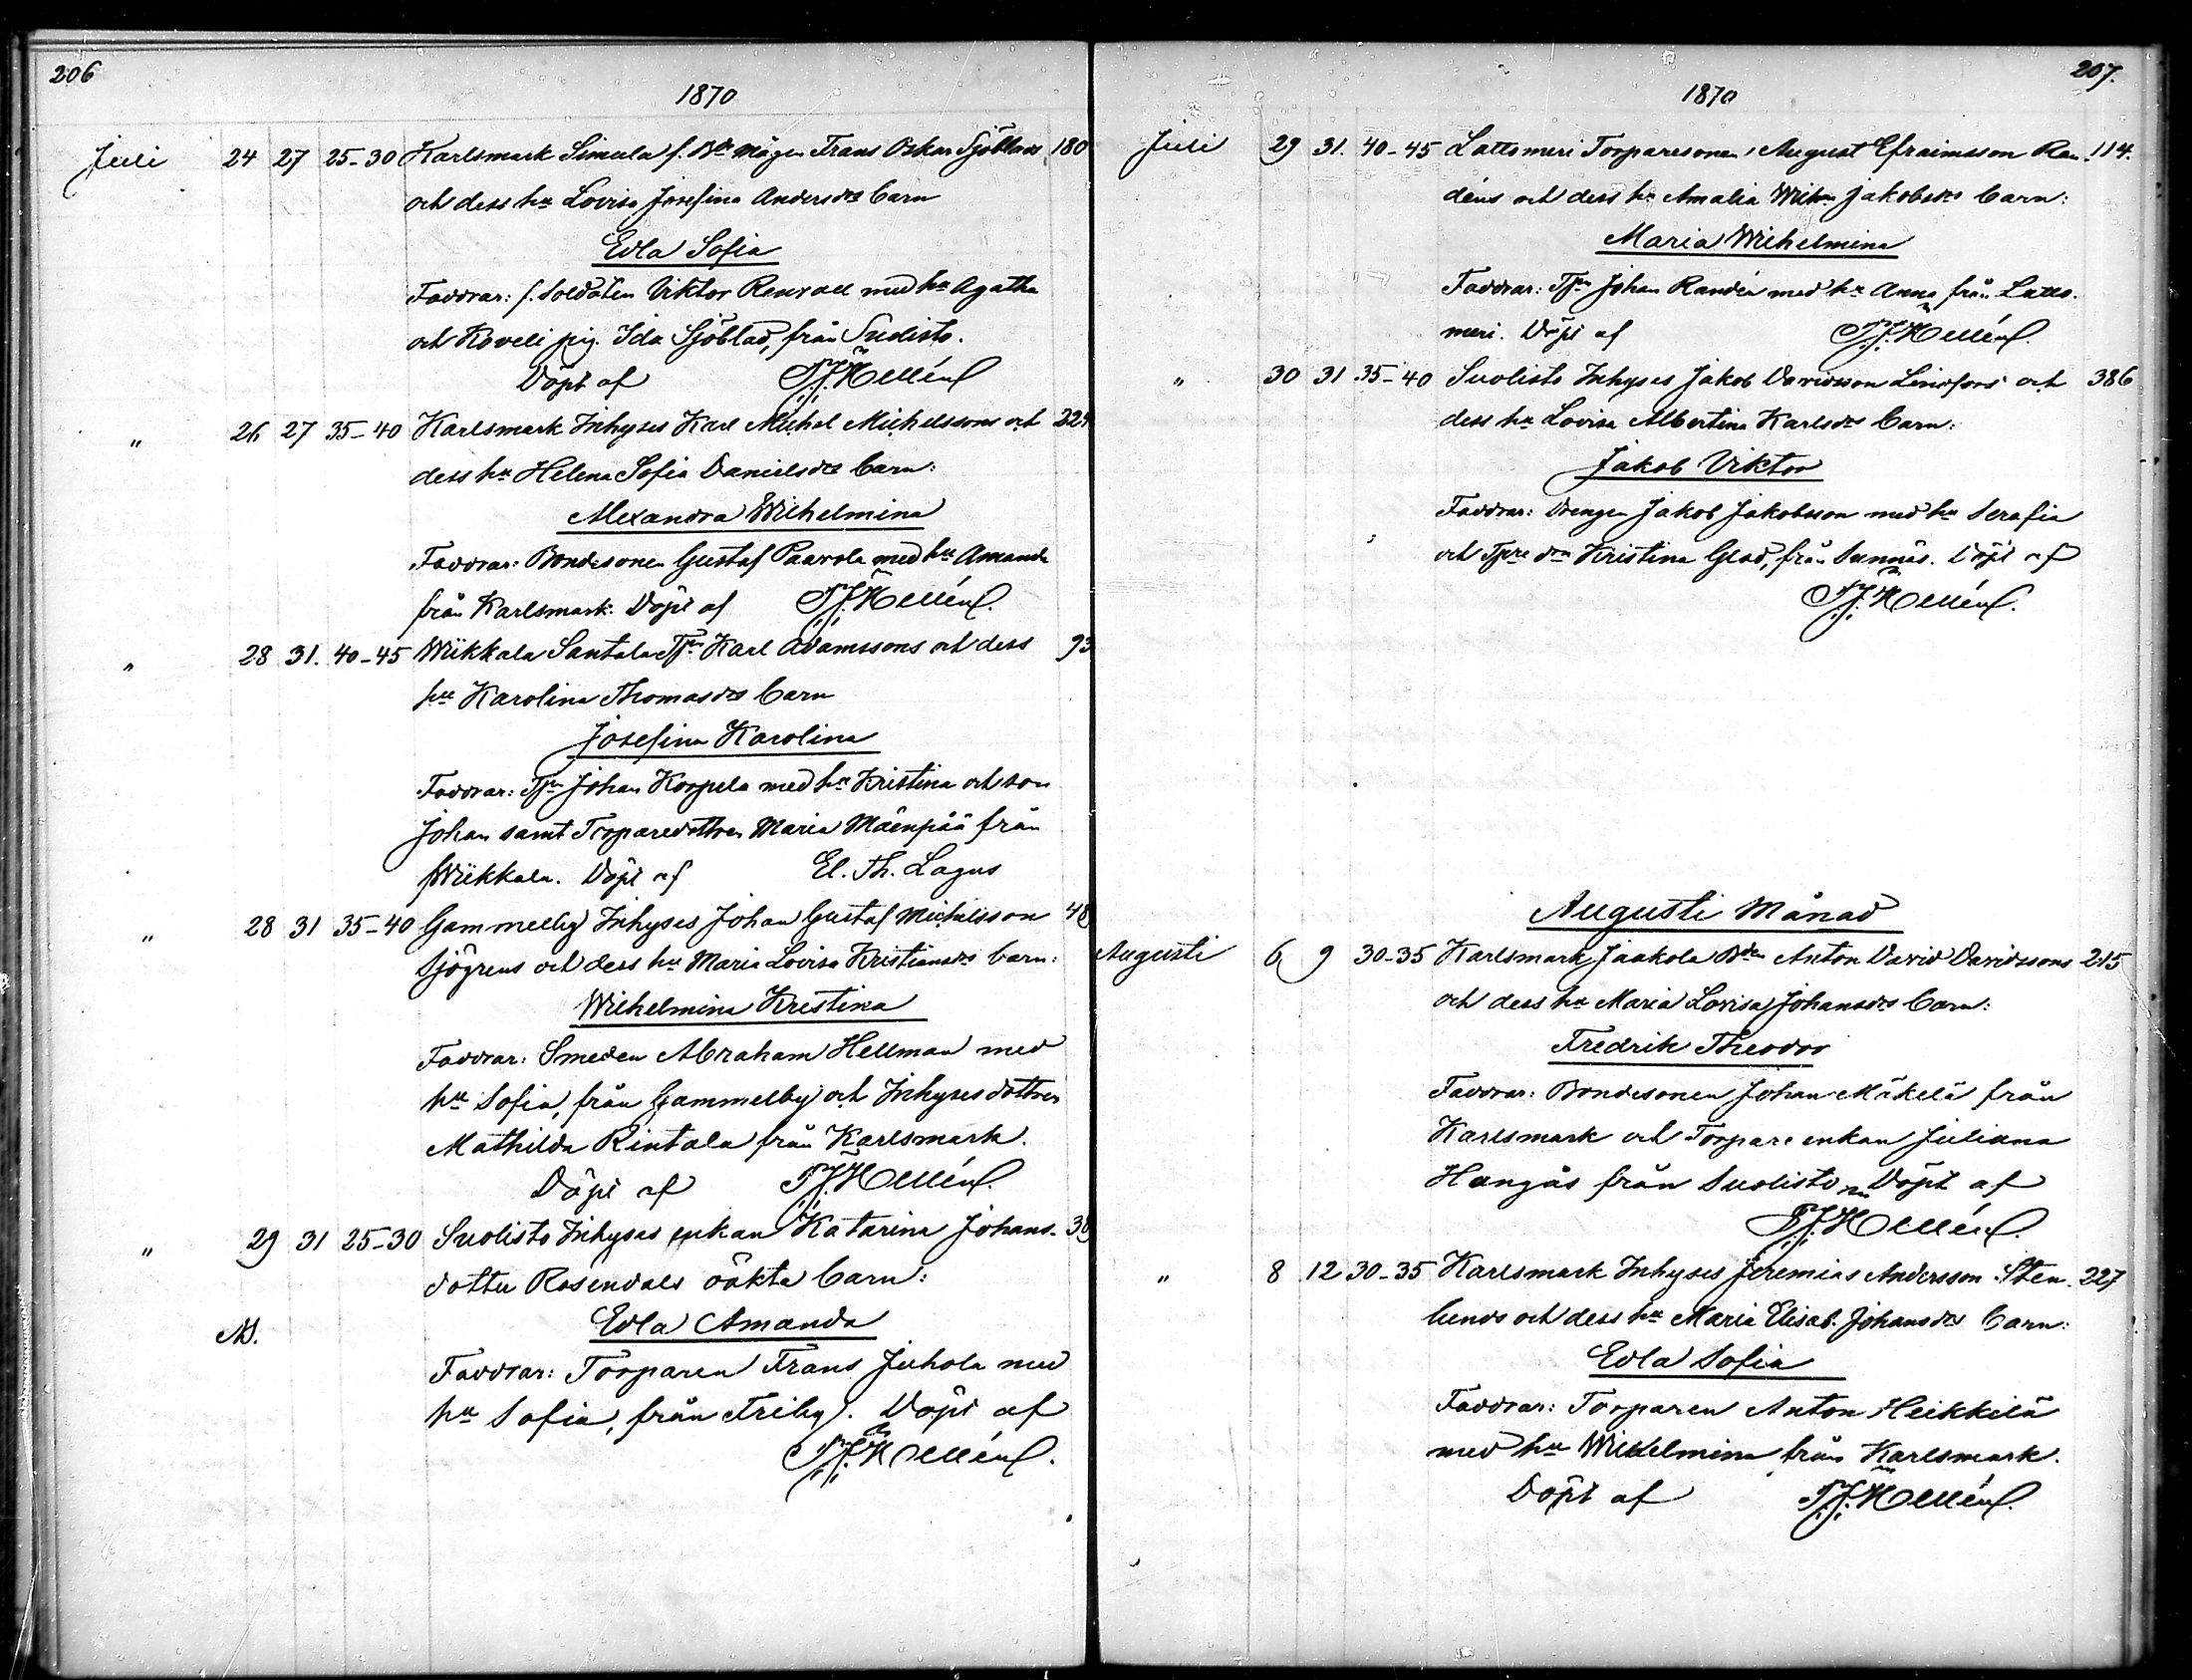 206
1870
Juli 24 27 25-30 Karlsmark Simula f. Bde mågen Frans Oskar Sjöblads 180
och dess hu Lovisa Josefina Andersdrs barn
Edla Sofia
Faddrar: f. Soldaten Viktor Renvall med hu Agatha
och Koveli pig. Ida Sjöblad, från Suolisto.
Döpt af F.J. Hellén
" 26 27 35-40 Karlsmark Inhyses Karl Michel Michelssons och 224
dess hu Helena Sofia Danielsdrs barn:
Alexandra Wilhelmina
Faddrar: Bondesonen Gustaf Paavola med hu Amanda
från Karlsmark. Döpt af F.J. Hellén.
" 28 31. 40-45 Wiikkala Santala Tpn Karl Adamssons och dess 93
hu Karolina Thomasdrs barn
Josefina Karolina
Faddrar: Tpn Johan Korpela med hu Kristina och son
Johan samt Torparedottren Maria Mäenpää från
Wiikkala. Döpt af El. Th. Lagus
" 28 31 35-40 Gammelby Inhyses Johan Gustaf Michelsson 48
Sjögrens och dess hu Maria Lovisa Kristiansdrs barn:
Wilhelmina Kristina
Faddrar: Smeden Abraham Hellman med
hu Sofia, från Gammelby och Inhyses dottren
Mathilda Rintala från Karlsmark.
Döpt af F.J. Hellén.
" 29 31 25-30 Suolisto Inhyses enkan Katarina Johans-
dotter Rosendals oäkta barn:
Edla Amanda
Faddrar: Torparen Frans Juhola med
hu Sofia, från Friby. Döpt af
F.J. Hellén.
207.
1870
Juli 29 31. 40-45 Lattomeri Torparesonen August Efraimsson Ran- 114.
déns och dess hu Amalia Wilhna Jakobsdrs barn:
Maria Wilhelmina
Faddrar: Tpn Johan Randén med hu Anna från Latto-
meri. Döpt af F.J. Hellén.
" 30 31 35-40 Suolisto Inhyses Jakob Davidsson Lindfors och 386
dess hu Lovisa Albertina Karlsdrs barn:
Jakob Viktor
Faddrar: Drengen Jakob Jakobsson med hu Serafia
och Tpre drn Kristina Glad, från Sunnäs. Döpt af
F.J. Hellén.
Augusti Månad
Augusti 6 9 30-35 Karlsmark Jaakola Bdn Anton David Davidssons 215
och dess hu Maria Lovisa Johansdrs barn:
Fredrik Theodor
Faddrar: Bondesonen Johan Mäkelä från
Karlsmark och Torpare enkan Juliana
Hangås från Suolisto. Döpt af
F.J. Hellén.
" 8 12 30-35 Karlsmark Inhyses Jeremias Andersson Sten- 227
lunds och dess hu Maria Elisab. Johansdrs barn:
Edla Sofia
Faddrar: Torparen Anton Heikkilä
med hu Wilhelmina från Karlsmark.
Döpt af F.J. Hellén.